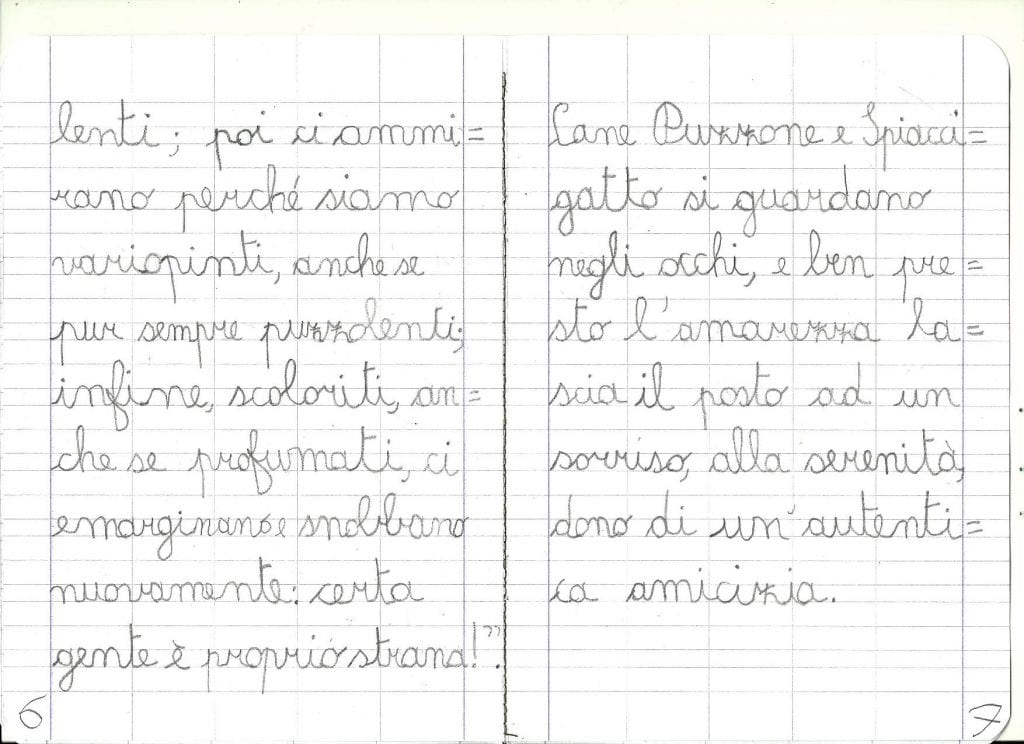 lenti; poi ci ammi=
rano perché siamo
variopinti, anche se
pur sempre puzzolenti;
infine, scoloriti, an=
che se profumati, ci
emarginano e snobbano
nuovamente: certa
gente è proprio strana!".
6
Cane Puzzone e Spiacci=
gatto si guardano
negli occhi, e ben pre=
sto l'amarezza la=
scia il posto ad un
sorriso, alla serenità,
dono di un'autenti=
ca amicizia.
7